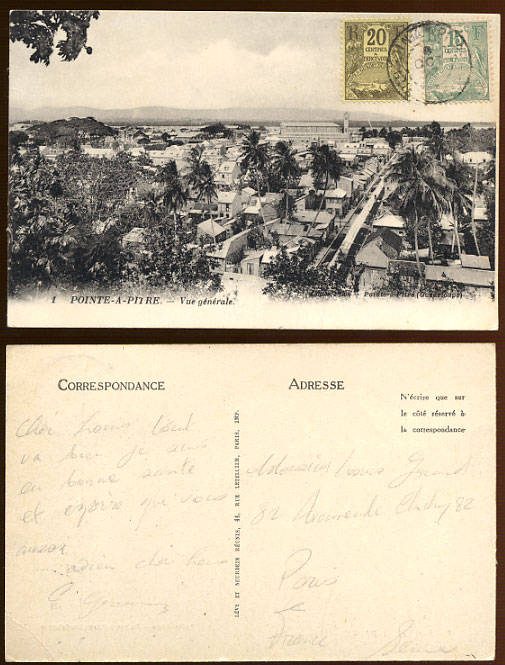 R F
20
CENTIMES
À
PERCEVOIR
R F
15
CENTIMES
À
PERCEVOIR
1 POINTE-A-PITRE. — Vue générale.
Pointe-à-Pitre (Guadeloupe)
CORRESPONDANCE
ADRESSE
N'écrire que sur
le côté réservé à
la correspondance
LÉVY ET NEURDEIN RÉUNIS, 44, RUE LETELLIER, PARIS, IMP.
Cher Louis tout
va bien je suis
en bonne santé
et espère que vous
aussi
adieu cher Louis
Monsieur Louis
82 Avenue de Clichy 82
Paris
France Seine